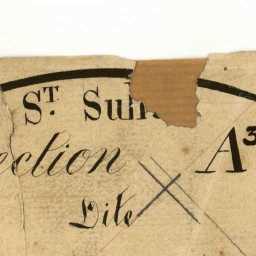 S.T. Sul
ection A3
Lite